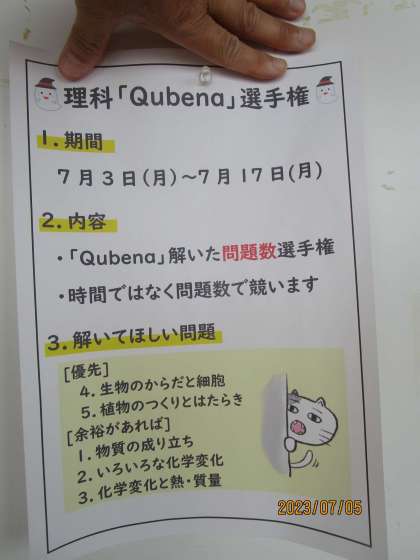 理科「Qubena」選手権
1.期間
7月3日(月)～7月17日(月)
2.内容
・「Qubena」解いた問題数選手権
・時間ではなく問題数で競います
3.解いてほしい問題
[優先]
4.生物のからだと細胞
5.植物のつくりとはたらき
[余裕があれば]
1.物質の成り立ち
2.いろいろな化学変化
3.化学変化と熱・質量
2023/07/05